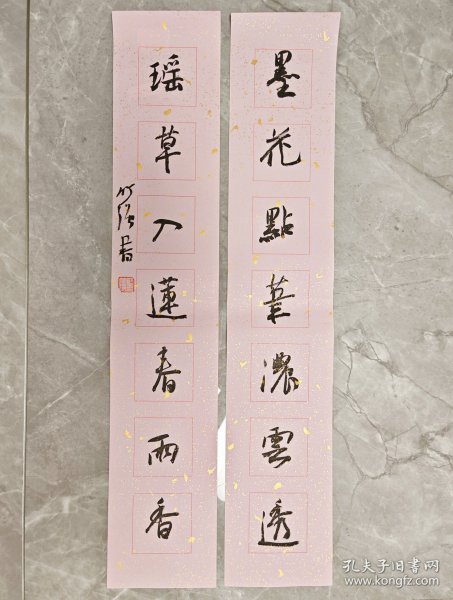 墨花點筆濃雲透
瑶草入蓮春雨香
孔夫子旧书网
www.kongfz.com